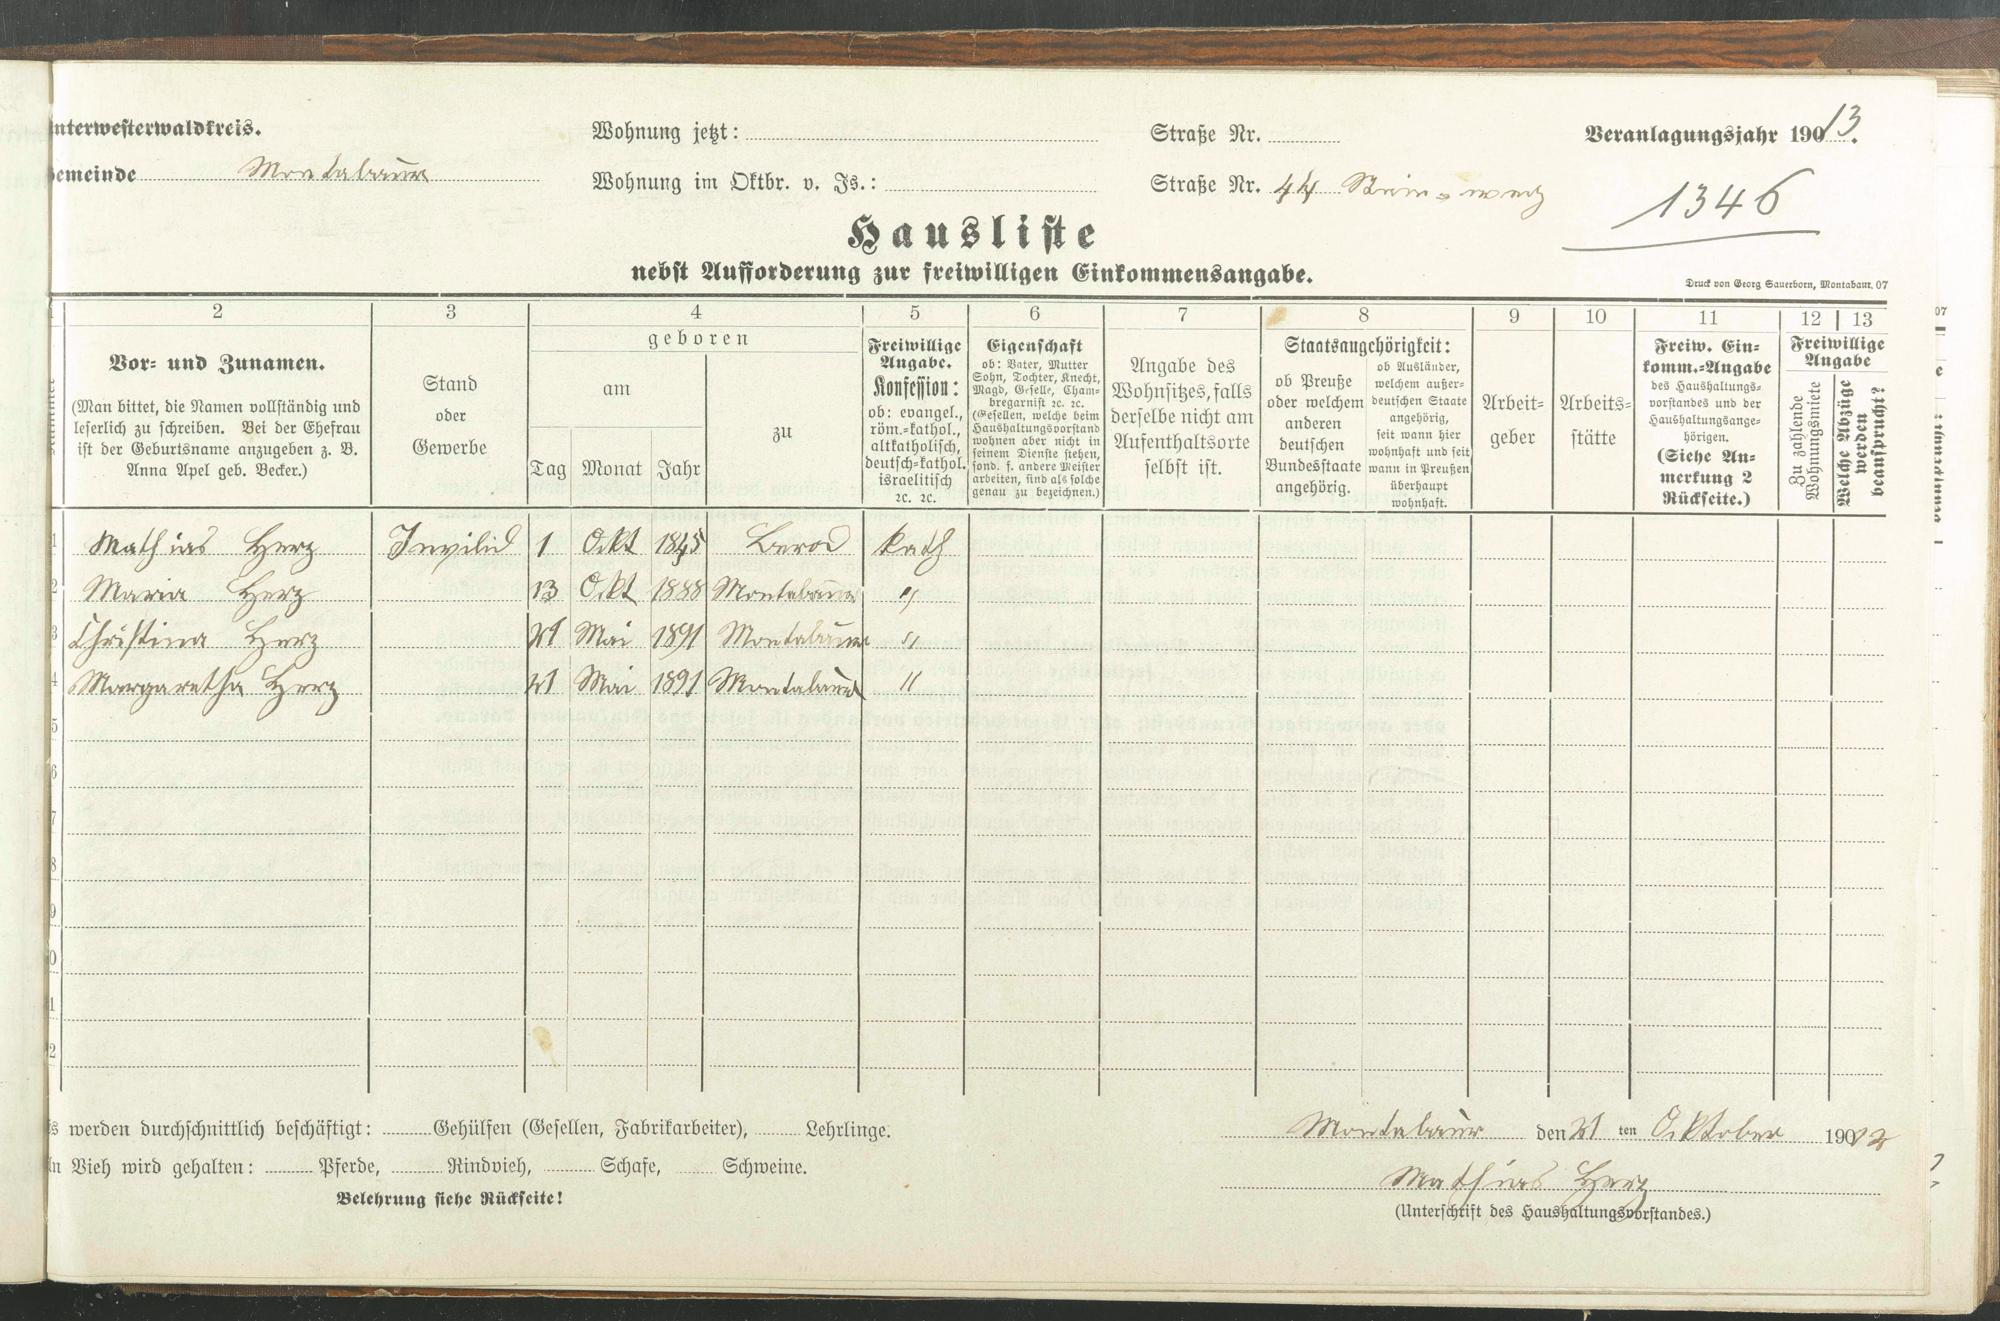 nterwesterwaldkreis.
Wohnung jetzt:
Straße Nr.
Veranlagungsjahr 1913.
emeinde Montabaur
Wohnung im Oktbr. v. Js.:
Straße Nr. 44 Steinweg
1346
Hausliste
nebst Aufforderung zur freiwilligen Einkommensangabe.
Druck von Georg Sauerborn, Montabaur. 07
2 3 4 5 6 7 8 9 10 11 12 13
Vor- und Zunamen.
(Man bittet, die Namen vollständig und
leserlich zu schreiben. Bei der Ehefrau
ist der Geburtsname anzugeben z. B.
Anna Apel geb. Becker.)
Stand
oder
Gewerbe
geboren
am
Tag Monat Jahr
zu
Freiwillige
Angabe.
Konfession:
ob: evangel.,
röm.-kathol.,
altkatholisch,
deutsch-kathol.
israelitisch
2c. 2c.
Eigenschaft
ob: Vater, Mutter
Sohn, Tochter, Knecht,
Magd, Geselle, Cham-
bregarnist 2c. 2c.
(Gesellen, welche beim
Haushaltungsvorstand
wohnen aber nicht in
seinem Dienste stehen,
sond. f. andere Meister
arbeiten, sind als solche
genau zu bezeichnen.)
Angabe des
Wohnsitzes, falls
derselbe nicht am
Aufenthaltsorte
selbst ist.
Staatsangehörigkeit:
ob Preuße
oder welchem
anderen
deutschen
Bundesstaate
angehörig.
ob Ausländer,
welchem außer-
deutschen Staate
angehörig,
seit wann hier
wohnhaft und seit
wann in Preußen
überhaupt
wohnhaft.
Arbeit-
geber
Arbeits-
stätte
Freiw. Ein-
komm.-Angabe
des Haushaltungs-
vorstandes und der
Haushaltungsange-
hörigen.
(Siehe An-
merkung 2
Rückseite.)
Freiwillige
Angabe
Zu zahlende
Wohnungsmiete
Welche Abzüge
werden
beansprucht?
1 Mathias Herz Invilid 1 Okt 1845 Berod kath
2 Maria Herz 13 Okt 1888 Montabaur "
3 Christina Herz 21 Mai 1891 Montabaur "
4 Margaretha Herz 21 Mai 1891 Montabaur "
5
6
7
8
9
0
1
2
s werden durchschnittlich beschäftigt: Gehülfen (Gesellen, Fabrikarbeiter), Lehrlinge.
Montabaur den 21 ten Oktober 1912
n Vieh wird gehalten: Pferde, Rindvieh, Schafe, Schweine.
Mathias Herz
Belehrung siehe Rückseite!
(Unterschrift des Haushaltungsvorstandes.)